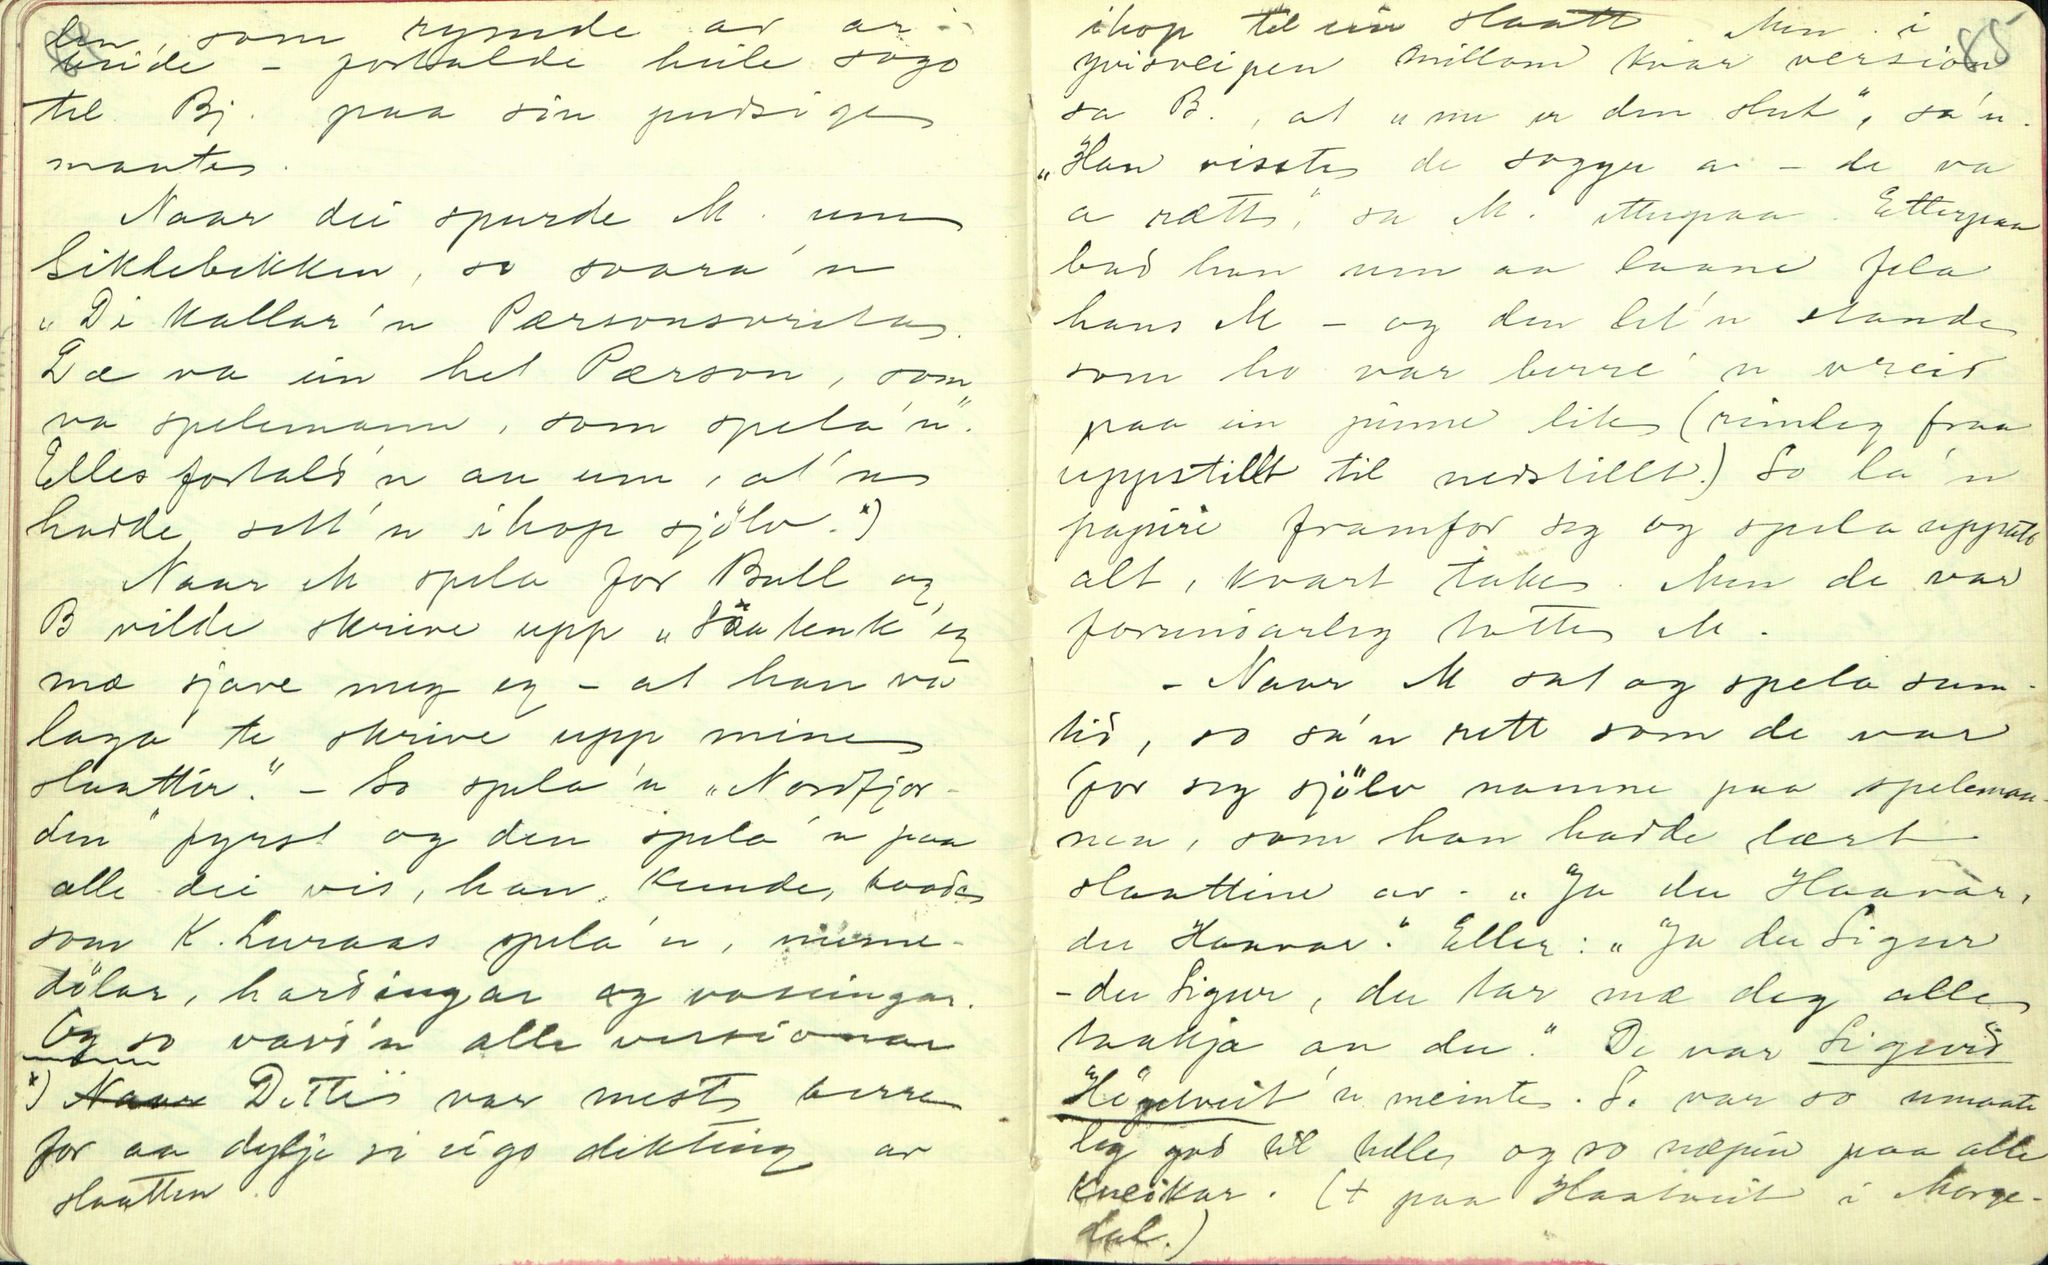 len, som rymde av ar-
beide – fortalde heile sogo
til Bj. paa sin pudsige
maate.
Naar dei spurde M. um
Siklebekken, so svara'n
„Di kallar'n Pærsonsvreta.
Dæ va ein het Pærson, som
va spelemann, som spela'n".
Elles fortald'n au um, at'n
hadde sett'n ihop sjölv.*)
Naar M spela for Bull og
B vilde skrive upp „Såa tenk eg
mæ sjave meg eg – at han va
laga te skrive upp mine
slaattir." – So spela'n „Nordfjor-
den" fyrst og den spela'n paa
alle dei vis, han kunde, baade
som K. Luraas spela'n, numme-
dölar, hardingar og vossingar.
Og so vavd'n alle versionar
*) Naar Dette var mest berre
for aa dylje si eigo dikting av
slaatten.
85
ihop til ein slaatt. Men i
yvisveipen millom kvar version
sa B., at „nu er den slut", sa'n.
„Han visste de sogge a – de va
a rætt", sa M. etterpaa. Etterpaa
bad han um aa laane fela
hans M – og den let'n stande
som ho var berre'n vreid
paa ein pinne lite (rimleg fraa
uppstillt til nedstillt.) So la'n
papiri framfor seg og spela uppatt
alt, kvart tak. Men de var
forunderleg totte M.
– Naar M sat og spela sum-
tid, so sa'n rett som de var
for seg sjölv namne paa speleman-
nen, som han hadde lært
slaattine av. „Ja du Haavar,
du Haavar." Eller: „Ja du Sigur
– du Sigur, du tar mæ deg alle
taakja an du." De var Sigurd
Högetveit'n meinte. S. var so umaate
leg god til telle og so næpin paa alle
kneikar. (+ paa Haatveit i Morge-
dal.)